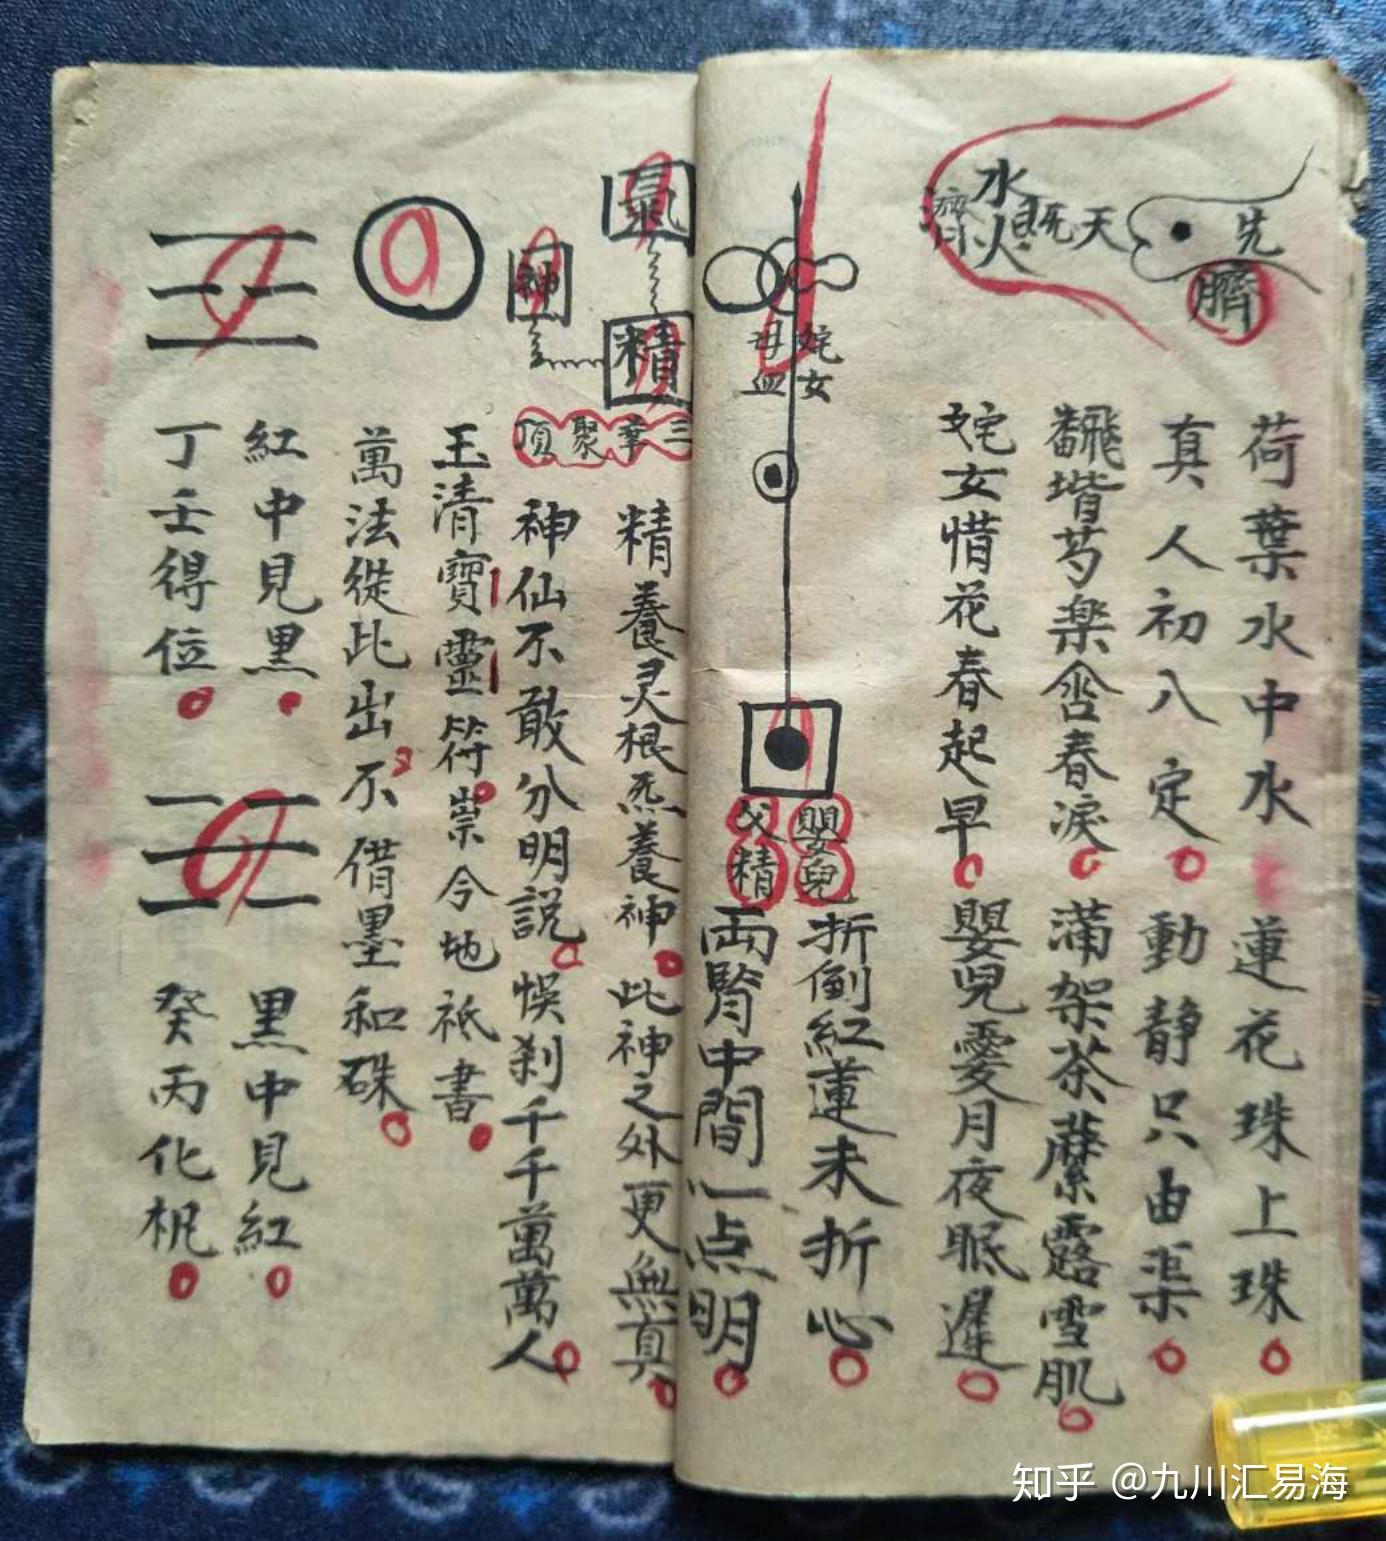 先
臍
天炁
水火
濟
荷葉水中水 蓮花珠上珠
真人初八定 動静只由渠
翻飛堦芍楽含春淚 滿架荼蘼露雪肌
姹女惜花春起早 嬰兒愛月夜眠遲
姹女
母血
嬰兒
父精
折倒紅蓮未折心
両腎中間一点明
氣
精
神
三華聚頂
精養灵根炁養神 此神之外更無真
神仙不敢分明説 悞刹千千萬萬人
玉清寶靈符 崇今地祇書
萬法從此出 不借墨和硃
紅中見黒 黒中見紅
丁壬得位 癸丙化机
知乎 @九川汇易海